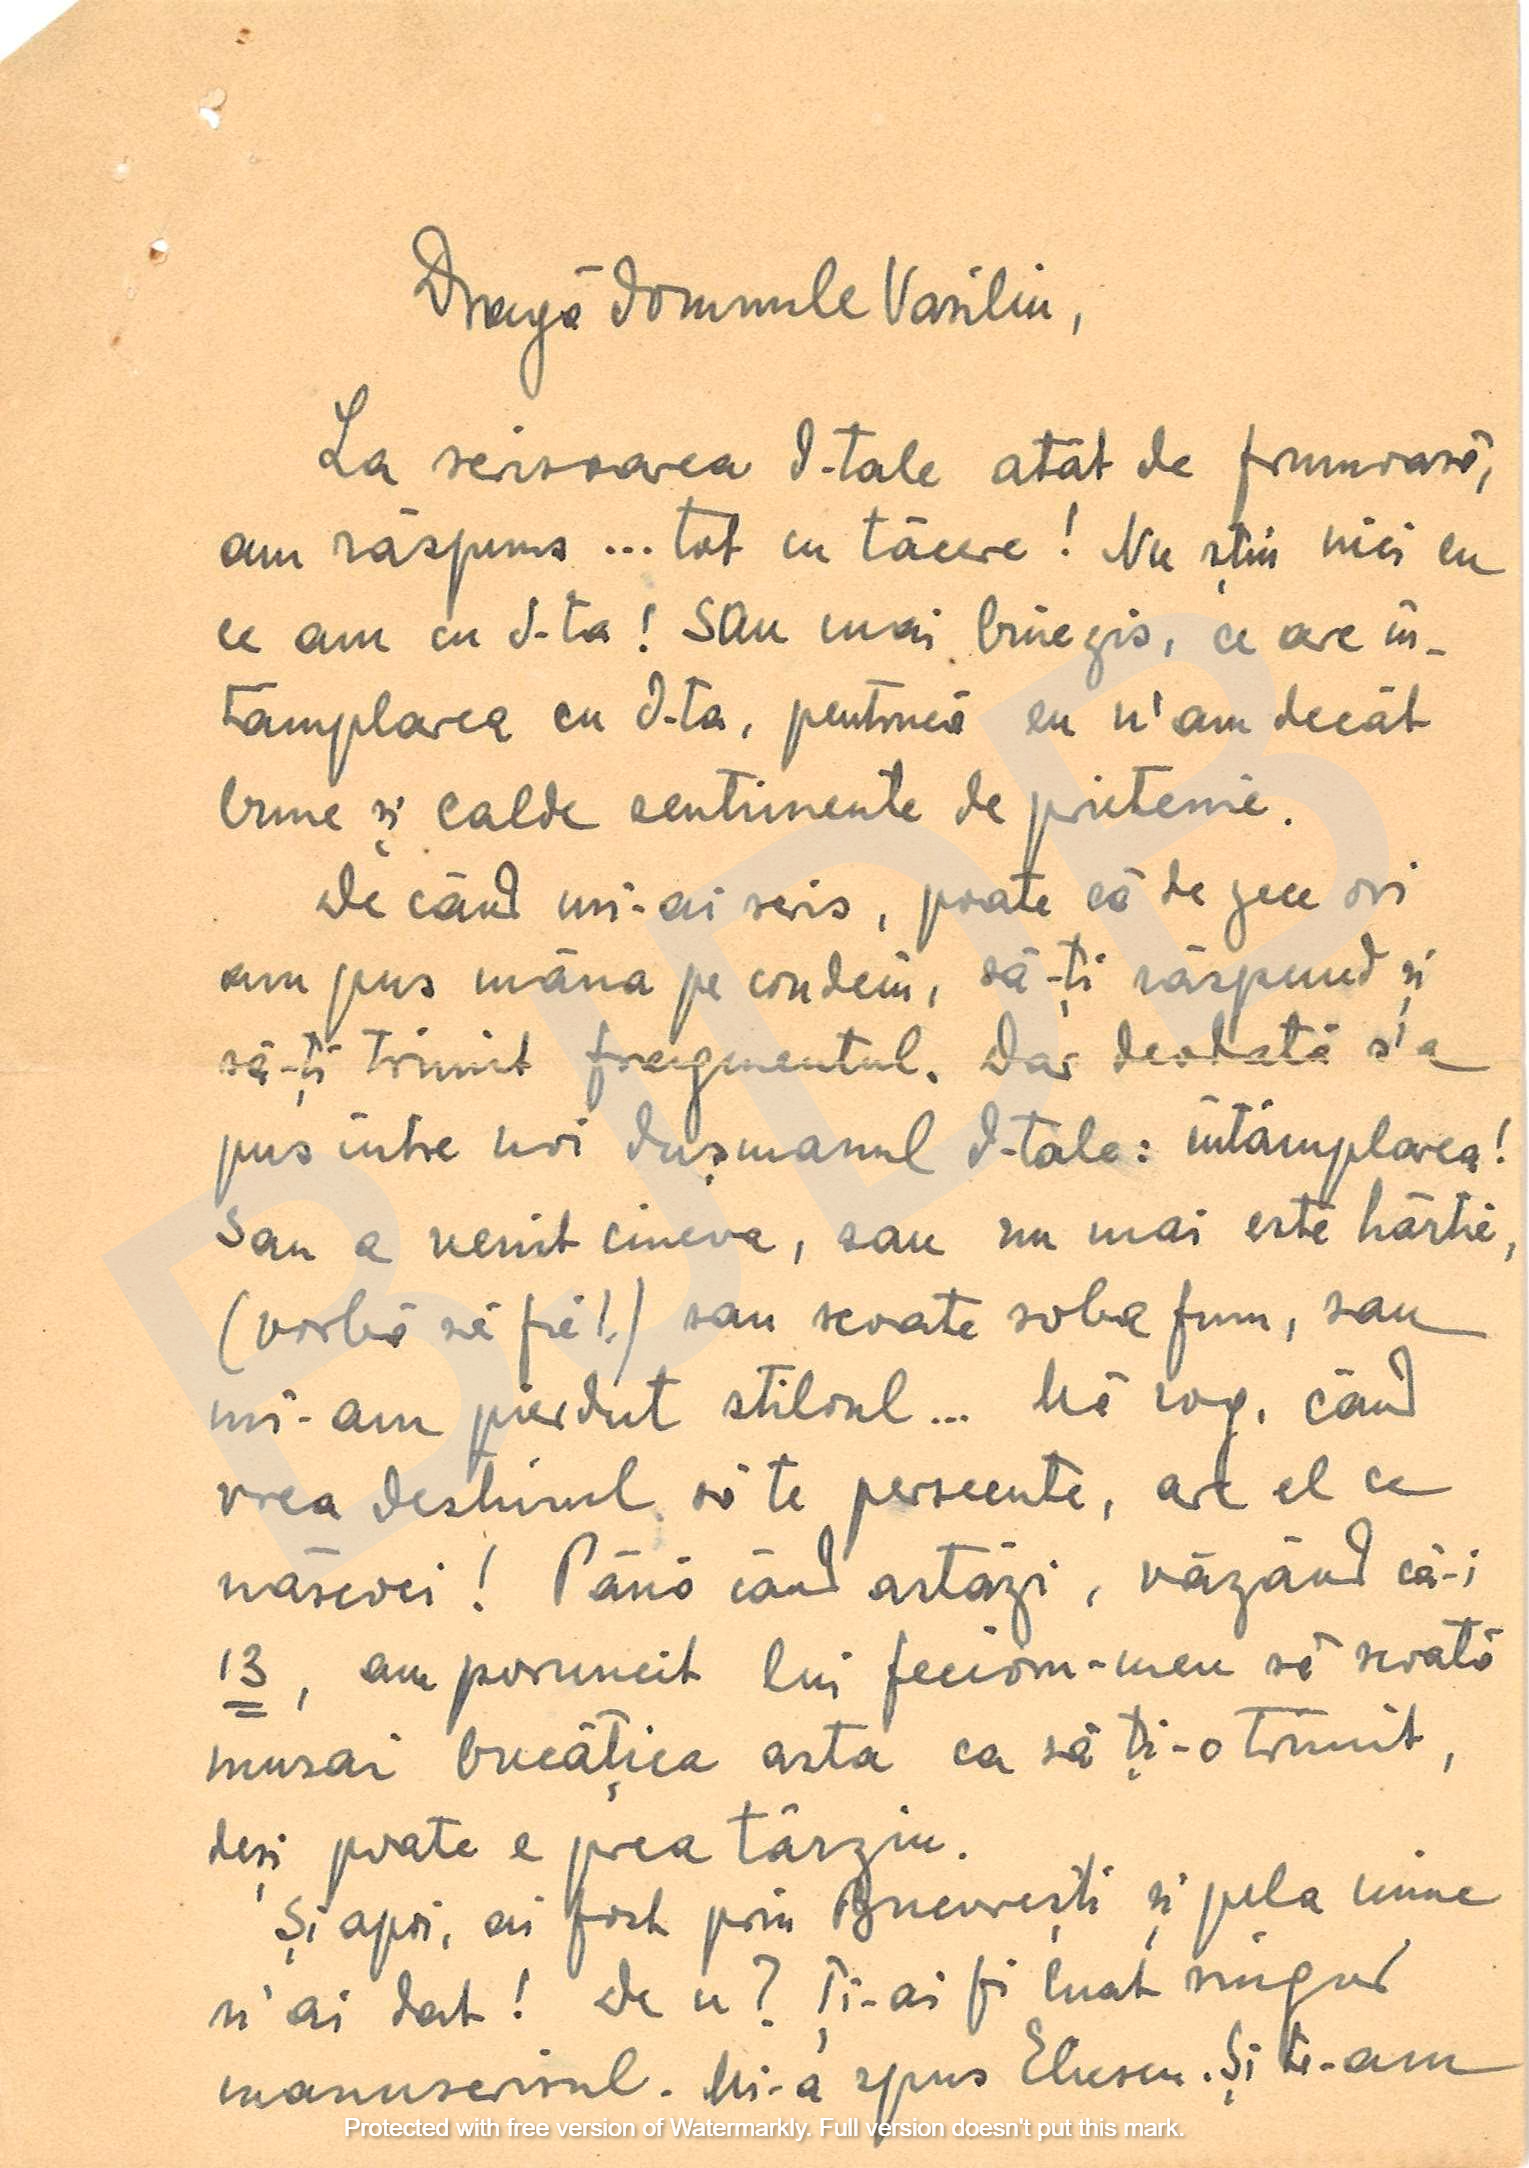 Dragă domnule Vasiliu,
La scrisoarea d-tale atât de frumoasă,
am răspuns ... tot cu tăcere! Nu știu nici eu
ce am cu d-ta! Sau mai bine zis, ce are în-
tâmplarea cu d-ta, pentrucă eu n'am decât
bune și calde sentimente de prietenie.
De când mi-ai scris, poate că de zece ori
am pus mâna pe condein, să-ți răspund și
să-ți trimit fragmentul. Dar deodată s'a
pus între noi dușmanul d-tale: întâmplarea!
Sau a venit cineva, sau nu mai este hârtie,
(vorbă să fie!) sau scoate soba fum, sau
mi-am pierdut stiloul... Mă rog, când
vrea destinul să te persecute, are el ce
născoci! Până când astăzi, văzând că-i
13, am poruncit lui fecioru-meu să scoată
musai bucățica asta ca să ți-o trimit,
deși poate e prea târziu.
Și apoi, ai fost prin București și pela mine
n'ai dat! De ce? Ți-ai fi luat singur
manuscrisul. Mi-a spus Și te-am
Protected with free version of Watermarkly. Full version doesn't put this mark.
BJDB